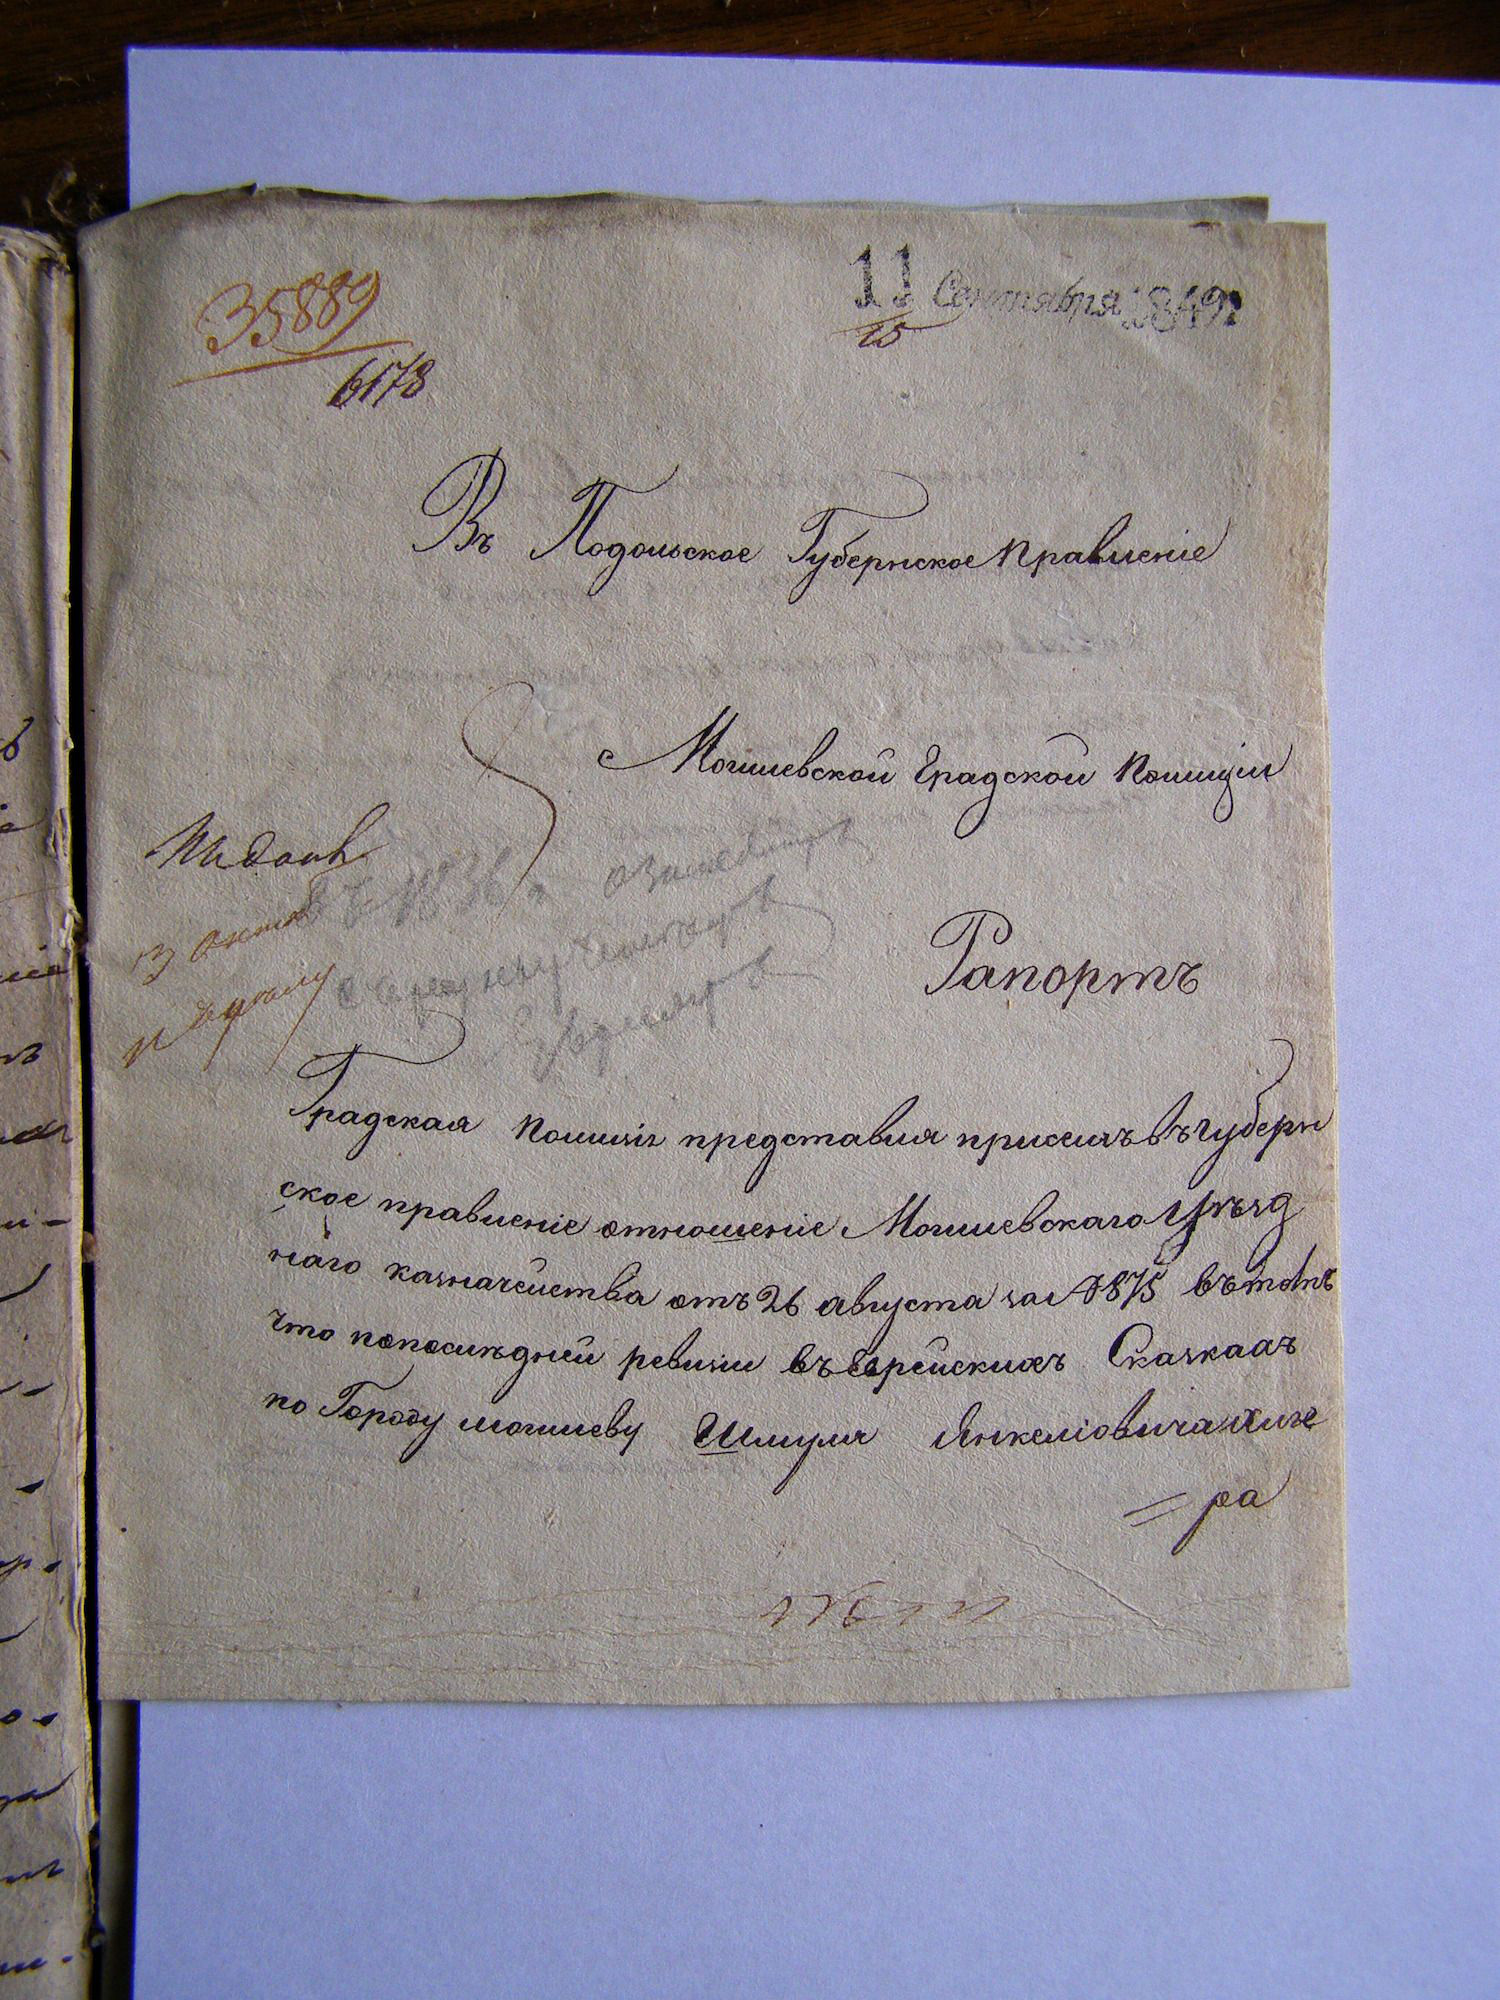 35889
6178
11 Сентября 1849
15
Въ Подольское Губернское Правленіе
Могилевской Градской Полиціи
Рапортъ
Градская Полиція представляя присемъ въ Губерн
ское правленіе отношеніе Могилевскаго Уѣзд
наго казначейства отъ 26 августа за № 875 въ томъ
что попослѣдней ревизіи въ Еврейскихъ Сказкахъ
по Городу Могилеву Шмуля Янкеліовича
= ра